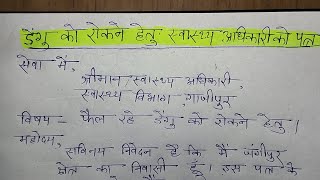 डेंगु को रोकने हेतु स्वास्थ्य अधिकारी को पत्र
सेवा में,
श्रीमान स्वास्थ्य अधिकारी,
स्वास्थ्य विभाग गाजीपुर
विषय - फैल रहे डेंगु को रोकने हेतु।
महोदय,
सविनय निवेदन है कि मैं जंगीपुर
क्षेत्र का निवासी हूँ। इस पत्र के